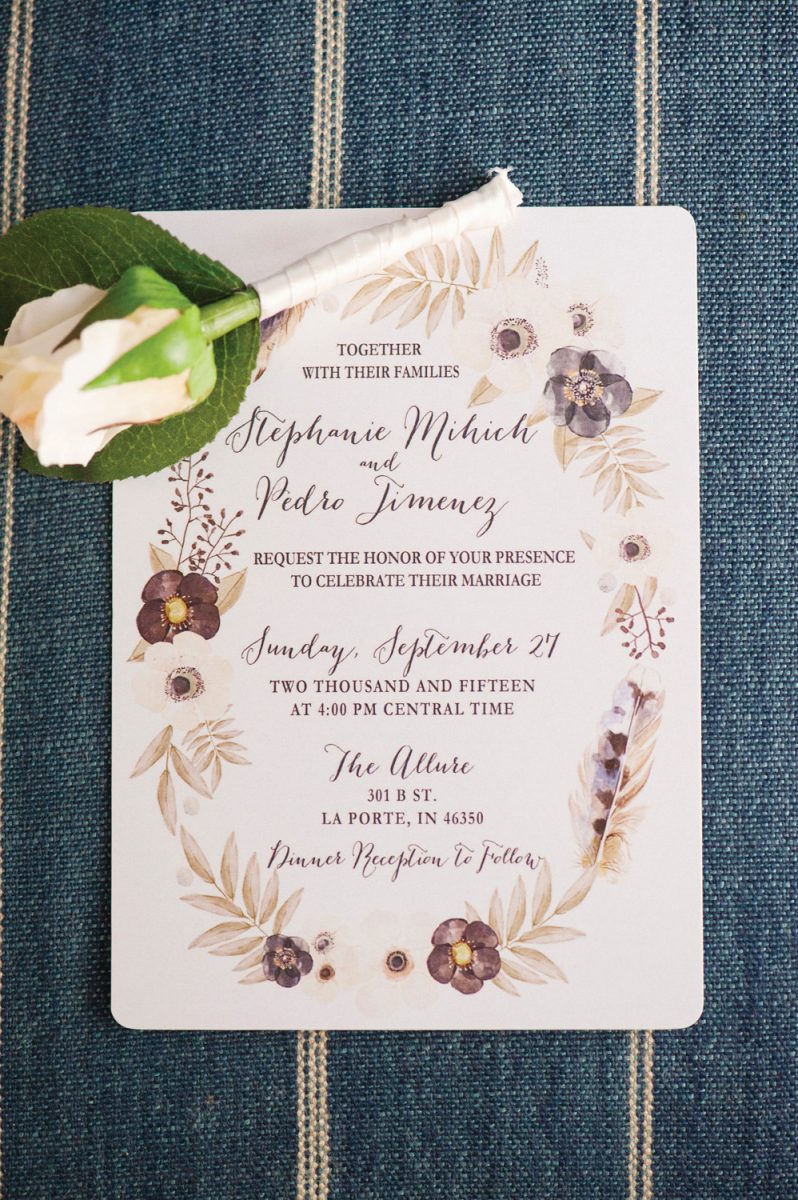 TOGETHER
WITH THEIR FAMILIES
Stephanie Mihich
and
Pedro Jimenez
REQUEST THE HONOR OF YOUR PRESENCE
TO CELEBRATE THEIR MARRIAGE
Sunday, September 27
TWO THOUSAND AND FIFTEEN
AT 4:00 PM CENTRAL TIME
The Allure
301 B ST.
LA PORTE, IN 46350
Dinner Reception to Follow